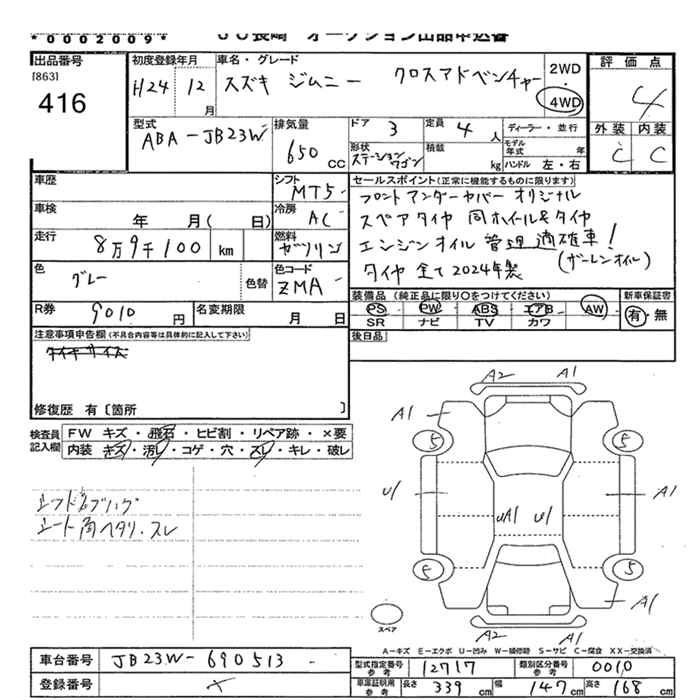 *0002009*
JU長崎 オークション出品申込書
出品番号
[863]
416
初度登録年月
H24 12月
車名・グレード
スズキ ジムニー クロスアドベンチャー
2WD
4WD
評価点
4
型式
ABA-JB23W
排気量
650 cc
ドア 3
定員 4人
ディーラー・並行
モデル年式 年
形状 ステーションワゴン
積載 kg
ハンドル 左・右
外装 内装
C C
車歴
シフト MT5
車検 年 月( 日)
冷房 AC
走行 8万9千100 km
燃料 ガソリン
色 グレー
色替
色コード ZMA
R券 9010 円
名変期限 月 日
セールスポイント(正常に機能するものに限ります)
フロントアンダーカバー オリジナル
スペアタイヤ 同ホイール&タイヤ
エンジンオイル 管理 適確車!
(ガーレンオイル)
タイヤ 全て2024年製
装備品(純正品に限り○をつけてください)
PS PW ABS エアB AW
SR ナビ TV カワ
新車保証書
有・無
後日品
注意事項申告欄(不具合内容等は具体的に記入して下さい)
タイヤサイズ
修復歴 有〔箇所 〕
検査員記入欄
FW キズ・飛石・ヒビ割・リペア跡・×要
内装 キズ・汚レ・コゲ・穴・スレ・キレ・破レ
シート角ヘタリ・スレ
A2 A1
A1
5 5
U1 A1
UA1 U1
5 5
A1
A2 A1
スペア
A-キズ E-エクボ U-凹み W-補修跡 S-サビ C-腐食 XX-交換済
車台番号 JB23W-690513
登録番号
型式指定番号 参考 12717
類別区分番号 参考 0010
車庫証明用 参考 長さ 339cm 幅 147cm 高さ 168cm